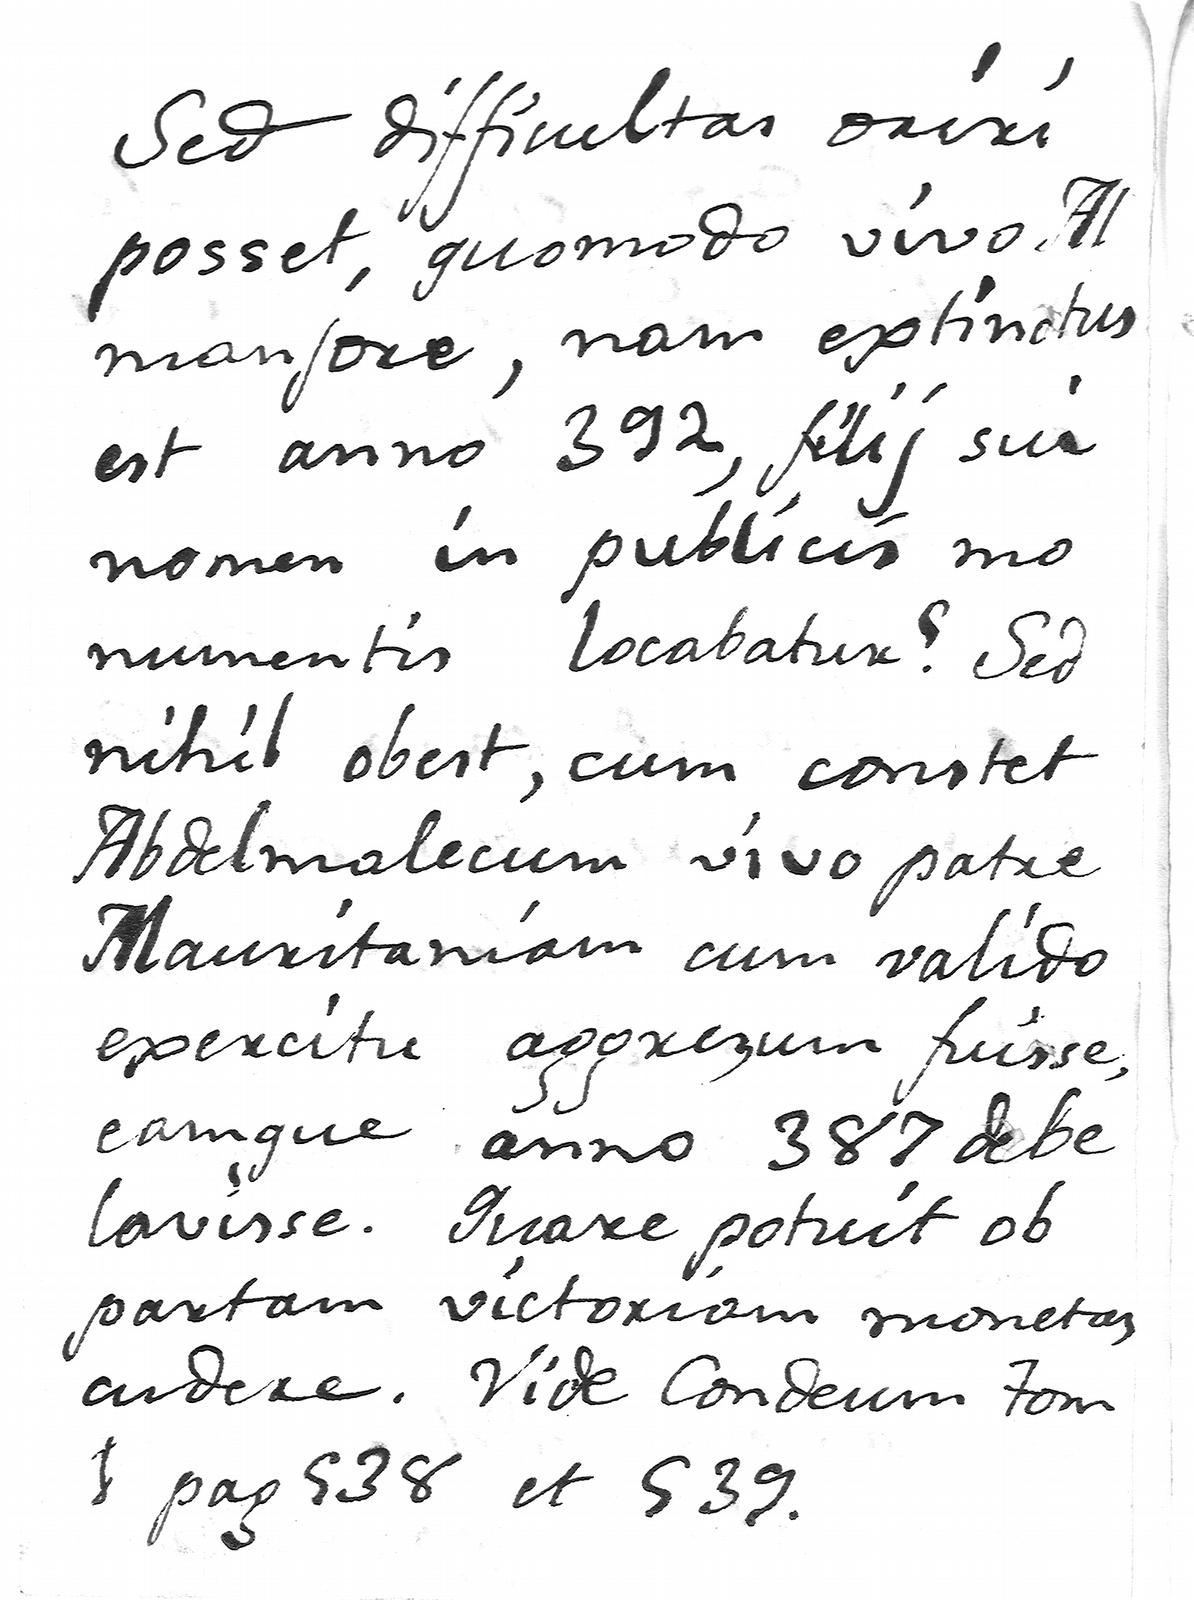 Sed difficultas oriri
posset, quomodo vivo Al
mansore, nam extinctus
est anno 392, filij sui
nomen in publicis mo
numentis locabatur? Sed
nihil obest, cum constet
Abdelmalecum vivo patre
Mauritaniam cum valido
exercitu aggresum fuisse,
eamque anno 387 debe
lavisse. Quare potuit ob
partam victoriam monetas
cudere. Vide Condeum Tom
I pag 538 et 539.